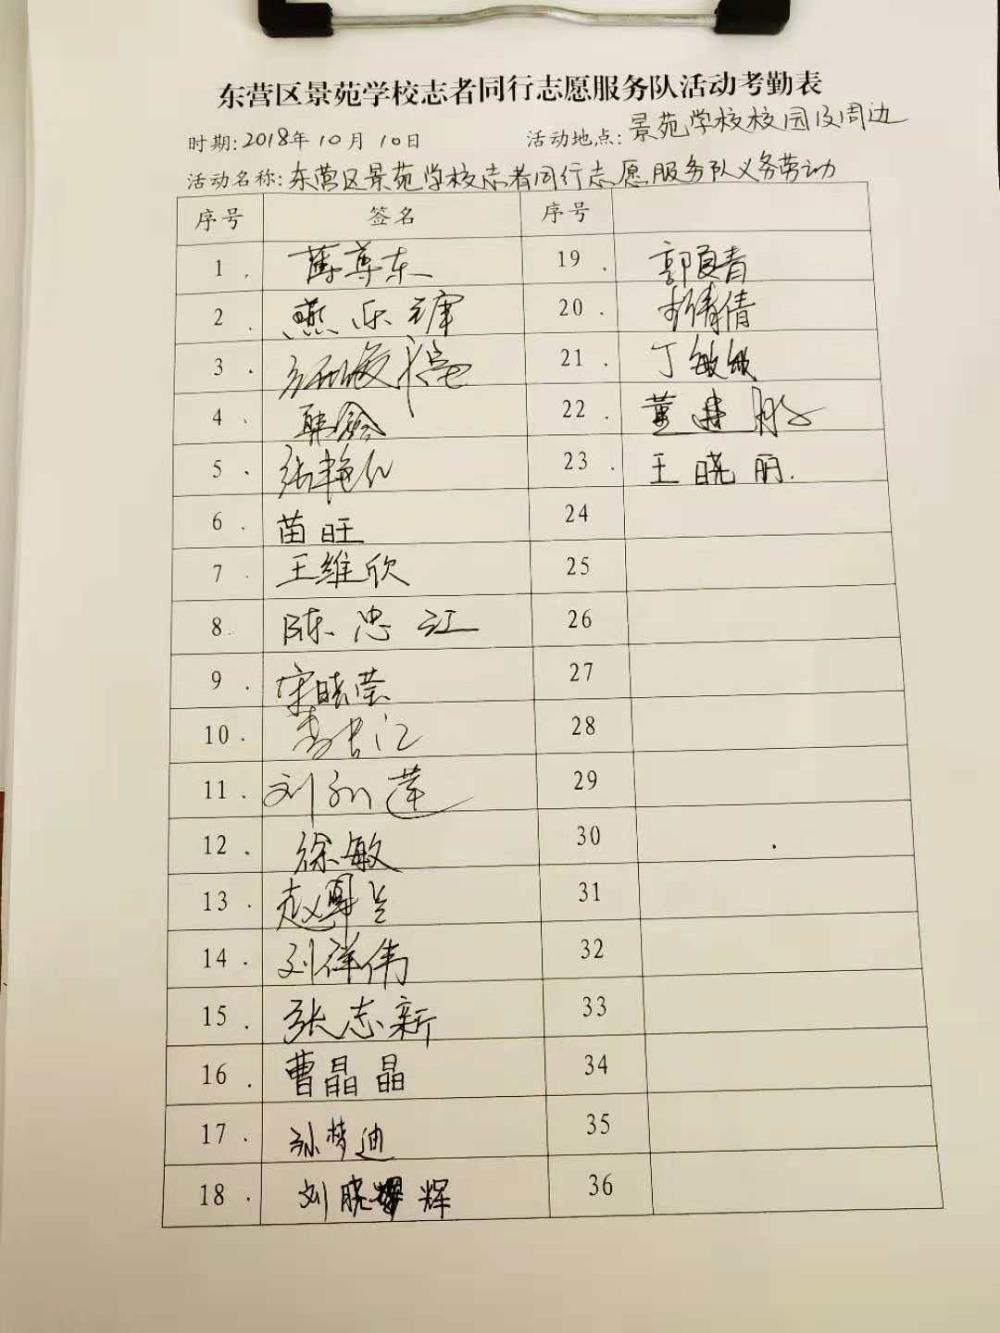 东营区景苑学校志者同行志愿服务队活动考勤表
时期:2018年10月10日 活动地点:景苑学校校园及周边
活动名称:东营区景苑学校志者同行志愿服务队义务劳动
序号 签名 序号
1. 薄尊东 19. 郭良青
2. 燕乐 20. 倩倩
3. 21. 丁敏敏
4. 22. 董建
5. 张艳 23. 王晓丽.
6. 苗旺 24
7. 王维欣 25
8. 陈忠江 26
9. 宋晓莹 27
10. 李长江 28
11. 刘 莲 29
12. 徐敏 30
13. 赵 兰 31
14. 刘祥伟 32
15. 张志新 33
16. 曹晶晶 34
17. 孙梦迪 35
18. 刘晓辉 36